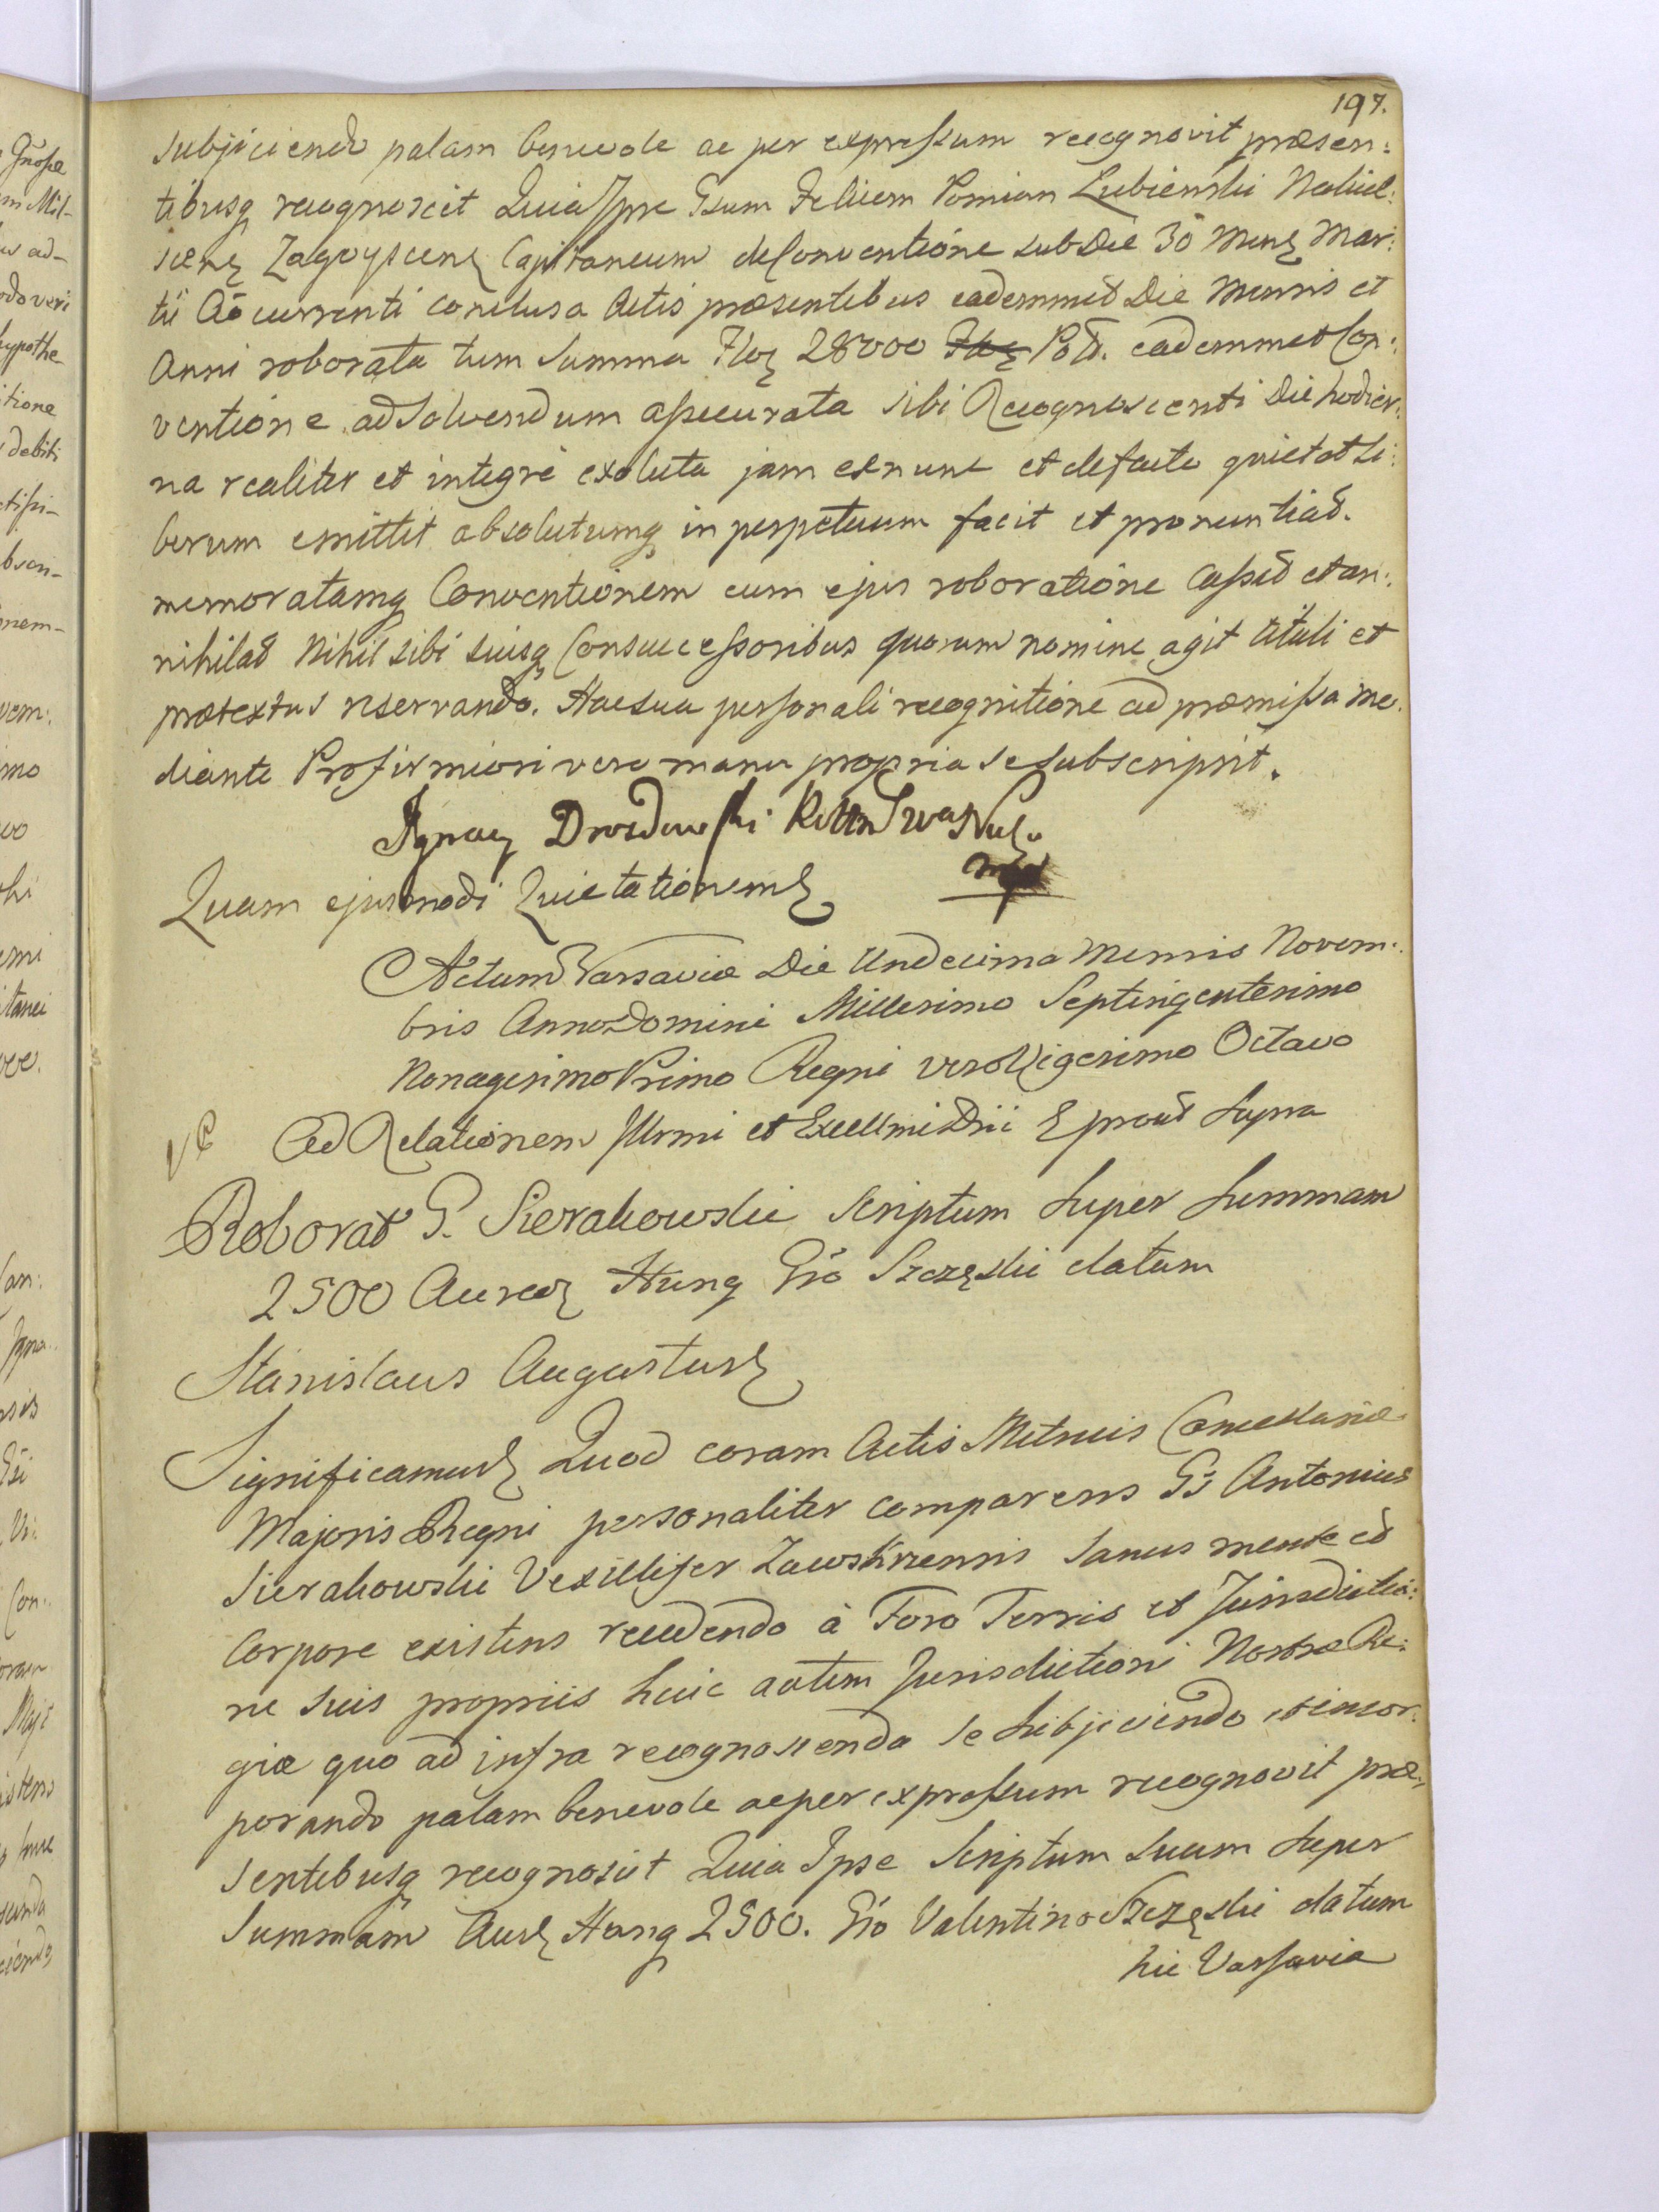 197.
subjiciendo palam benevole ac per expressum recognovit præsen:
tibusq recognoscit Quia Ipse Gsum Felicem Pomian Lubienski
Zagoyscens Capitaneum de Conventione sub Die 30 Mens Mar:
tii Aō currenti conclusa Actis præsentibus eademmet Die Mensis et
Anni roborata tum Summa Flor 28000 Pol. eademmet Con:
ventione ad Solvendum assecurata sibi Recognoscenti Die hodier:
na realiter et integrè exoluta jam exnunc et defacto quietat Li:
berum emittit absolutumq in perpetuum facit et pronuntiat.
memoratamq Conventionem cum ejus roboratione Cassat et an:
nihilat Nihil sibi suisq Consuccessoribus quorum nomine agit tituli et
prætextus reservando. Hac sua personali recognitione ad præmissa me:
diante Pro firmiori vero manu propria se subscripsit.
Ignacy Drozdowski
mp
Quam ejusmodi Quietationem
Actum Varsaviæ Die Undecima Mensis Novem:
bris Anno Domini Millesimo Septingentesimo
Nonagesimo Primo Regni vero Vigesimo Octavo
Ad Relationem Illrmi et Excellmi Dni prout Supra
Roborat G. Sierakowski Scriptum Super Summam
2500 Aureor Hung Gso Szczęski datum
Stanislaus Augustus
Significamus Quod coram Actis Metrices Cancellariæ
Majoris Regni personaliter comparens Gs Antonius
Sierakowski Vexillifer Zawskrzensis Sanus mente et
Corpore existens recedendo à Foro Terris et Jurisdictio:
ne suis propriis huic autem Jurisdictioni Nostræ Re:
giæ quo ad infra recognoscenda se subjiciendo et incor:
porando palam benevole ac per expressum recognovit præ:
sentibusq recognoscit Quia Ipse Scriptum Suum Super
Summam Aur Hung 2500. Gso Valentino Szczęski datum
hic Varsaviæ